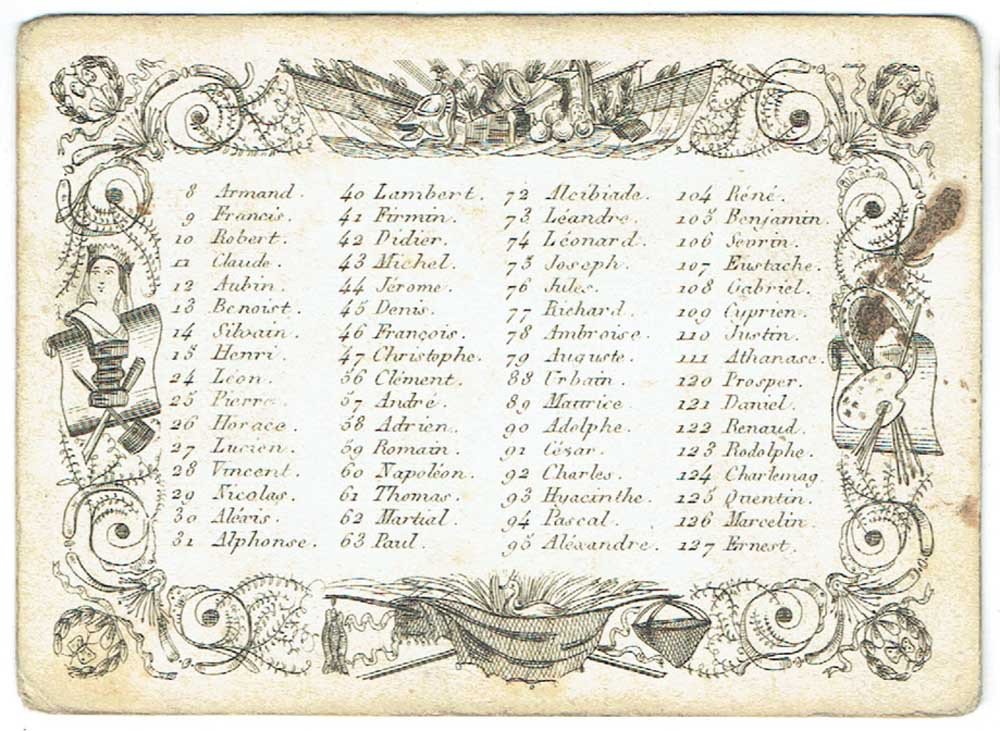 8 Armand. 40 Lambert. 72 Alcibiade. 104 Réné.
9 Francis. 41 Firmin. 73 Léandre. 105 Benjamin.
10 Robert. 42 Didier. 74 Léonard. 106 Sevrin.
11 Claude. 43 Michel. 75 Joseph. 107 Eustache.
12 Aubin. 44 Jérome. 76 Jules. 108 Gabriel.
13 Benoist. 45 Denis. 77 Richard. 109 Cyprien.
14 Silvain. 46 François. 78 Ambroise. 110 Justin.
15 Henri. 47 Christophe. 79 Auguste. 111 Athanase.
24 Léon. 56 Clément. 88 Urbain. 120 Prosper.
25 Pierre. 57 André. 89 Maurice. 121 Daniel.
26 Horace. 58 Adrien. 90 Adolphe. 122 Renaud.
27 Lucien. 59 Romain. 91 César. 123 Rodolphe.
28 Vincent. 60 Napoléon. 92 Charles. 124 Charlemag
29 Nicolas. 61 Thomas. 93 Hyacinthe. 125 Quentin.
30 Aléxis. 62 Martial. 94 Pascal. 126 Marcelin.
31 Alphonse. 63 Paul. 95 Aléxandre. 127 Ernest.